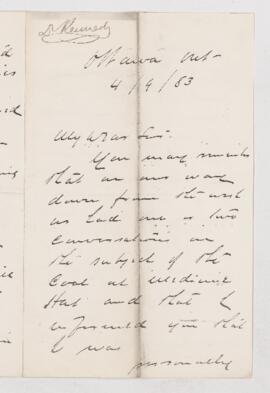 Dr. Kennedy
Ottawa Ont
4/9/83
My Dear Sir
You may
that on our way
down from the west
we had one or two
conversations on
the subject of the
Coal at Medicine
Hat and that I
informed you that
I was
personally